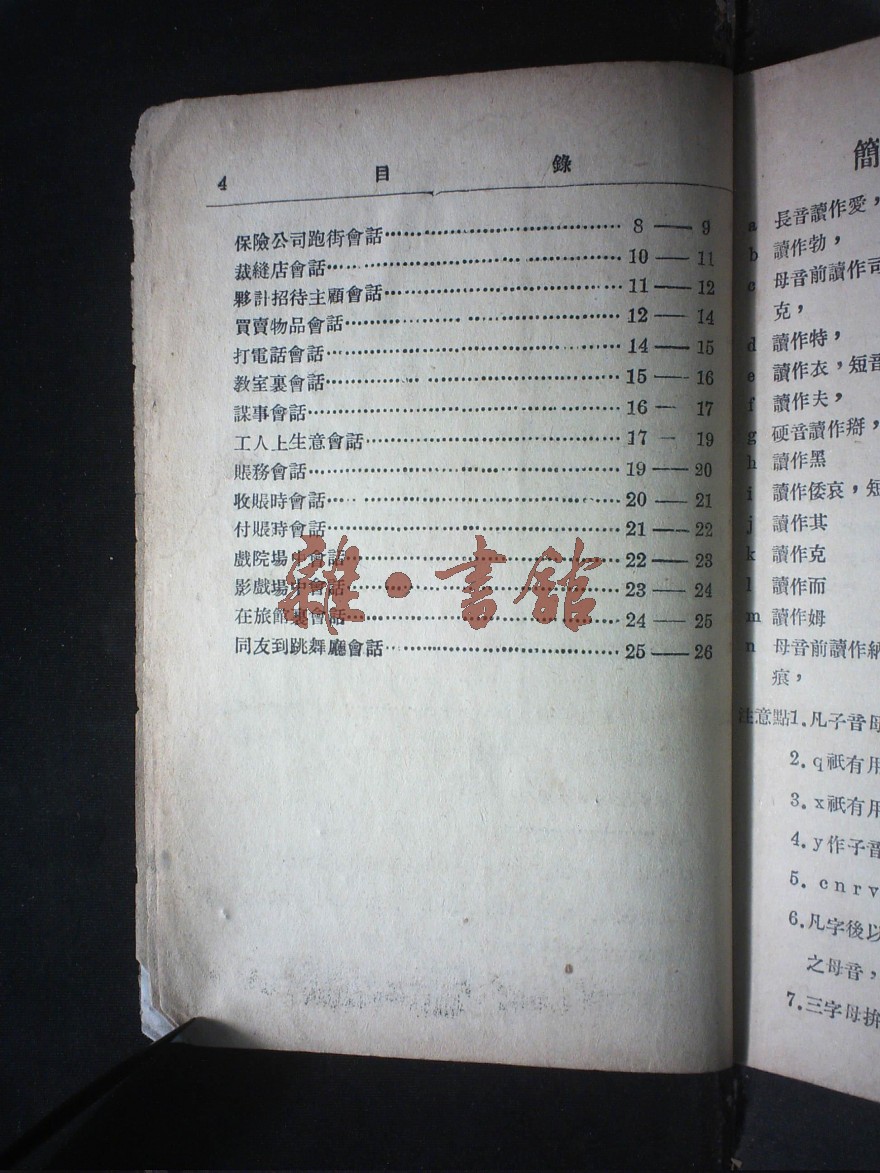 4 目 錄
保險公司跑街會話 8 — 9
裁縫店會話 10 — 11
夥計招待主顧會話 11 — 12
買賣物品會話 12 — 14
打電話會話 14 — 15
教室裏會話 15 — 16
謀事會話 16 — 17
工人上生意會話 17 — 19
賬務會話 19 — 20
收賬時會話 20 — 21
付賬時會話 21 — 22
戲院場中會話 22 — 23
影戲場中會話 23 — 24
在旅館裏會話 24 — 25
同友到跳舞廳會話 25 — 26
雜·書館
簡
a 長音讀作愛，
b 讀作勃，
c 母音前讀作司
克，
d 讀作特，
e 讀作衣，短音
f 讀作夫，
g 硬音讀作搿，
h 讀作黑
i 讀作倭哀，短
j 讀作其
k 讀作克
l 讀作而
m 讀作姆
n 母音前讀作納
痕，
注意點1.凡子音母
2.q祇有用
3.x祇有用
4.y作子音
5.cnrv
6.凡字後以
之母音，
7.三字母拚